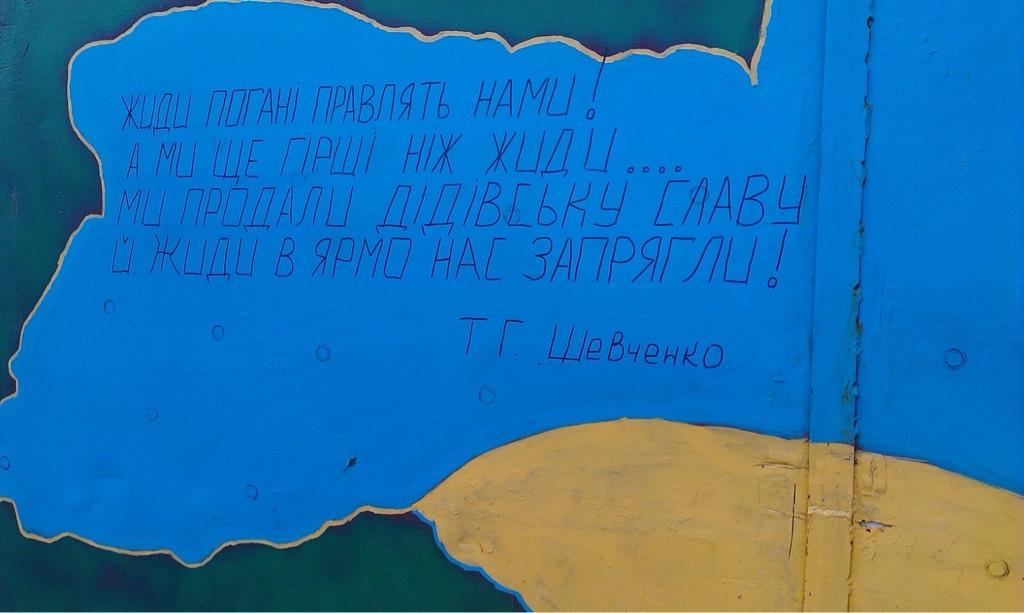 ЖИДИ ПОГАНІ ПРАВЛЯТЬ НАМИ!
А МИ ЩЕ ГІРШІ НІЖ ЖИДИ....
МИ ПРОДАЛИ ДІДІВСЬКУ СЛАВУ
Й ЖИДИ В ЯРМО НАС ЗАПРЯГЛИ!
Т. Г. Шевченко